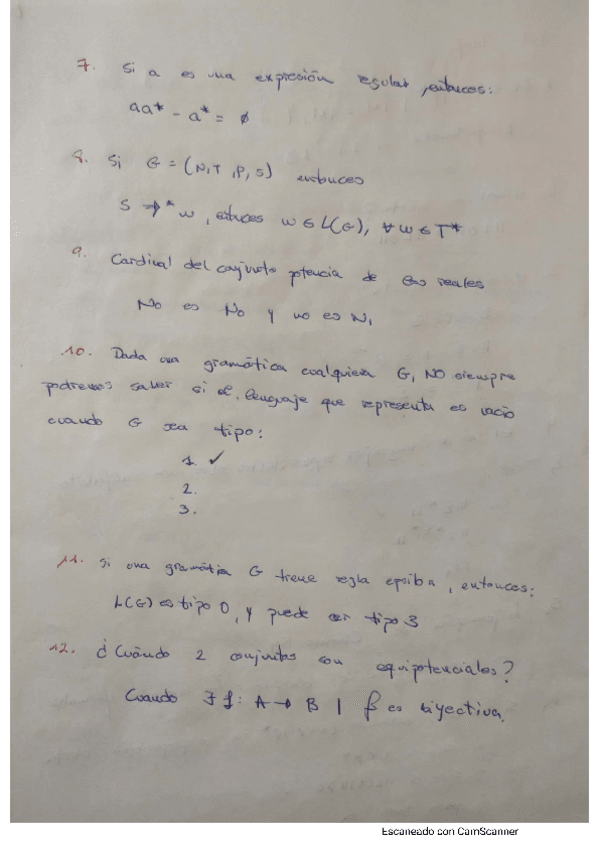 7. Si a es una expresión regular, entonces:
aa* - a* = ∅
8. Si G = (N,T,P,S) entonces
S →* w, entonces w ∈ L(G), ∀ w ∈ T*
9. Cardinal del conjunto potencia de los reales
No es No y no es N₁
10. Dada una gramática cualquiera G, NO siempre
podremos saber si el lenguaje que representa es vacío
cuando G sea tipo:
1. ✓
2.
3.
11. Si una gramática G tiene regla epsilon, entonces:
L(G) es tipo 0, y puede ser tipo 3
12. ¿Cuándo 2 conjuntos son equipotenciales?
Cuando ∃ f: A → B | f es biyectiva.
Escaneado con CamScanner